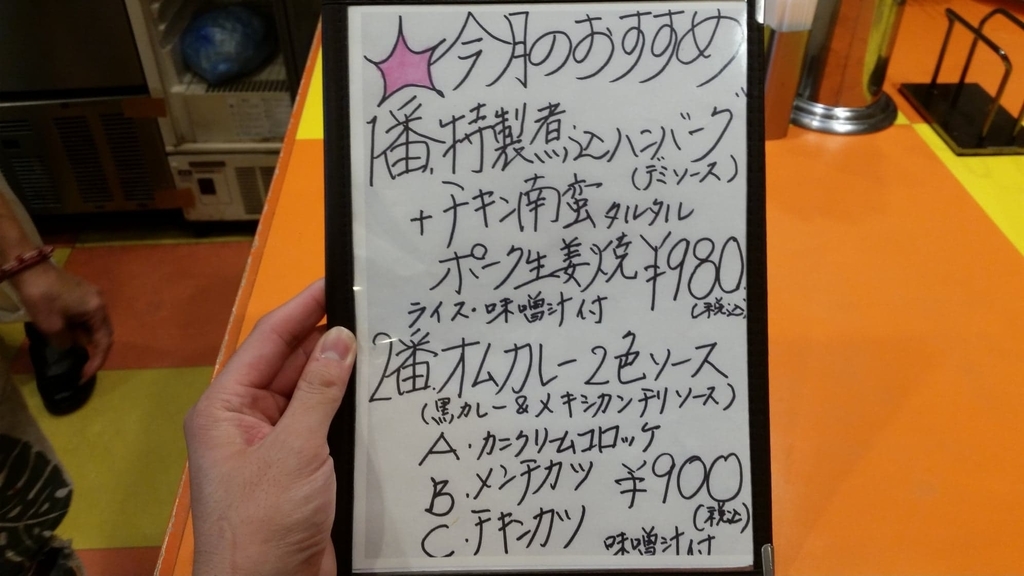 今月のおすすめ
1番.特製煮込ハンバーグ
(デミソース)
+チキン南蛮タルタル
ポーク生姜焼 ¥980
ライス・味噌汁付 (税込)
2番.オムカレー2色ソース
(黒カレー&メキシカンチリソース)
A.カニクリームコロッケ
B.メンチカツ ¥900
(税込)
C.チキンカツ 味噌汁付